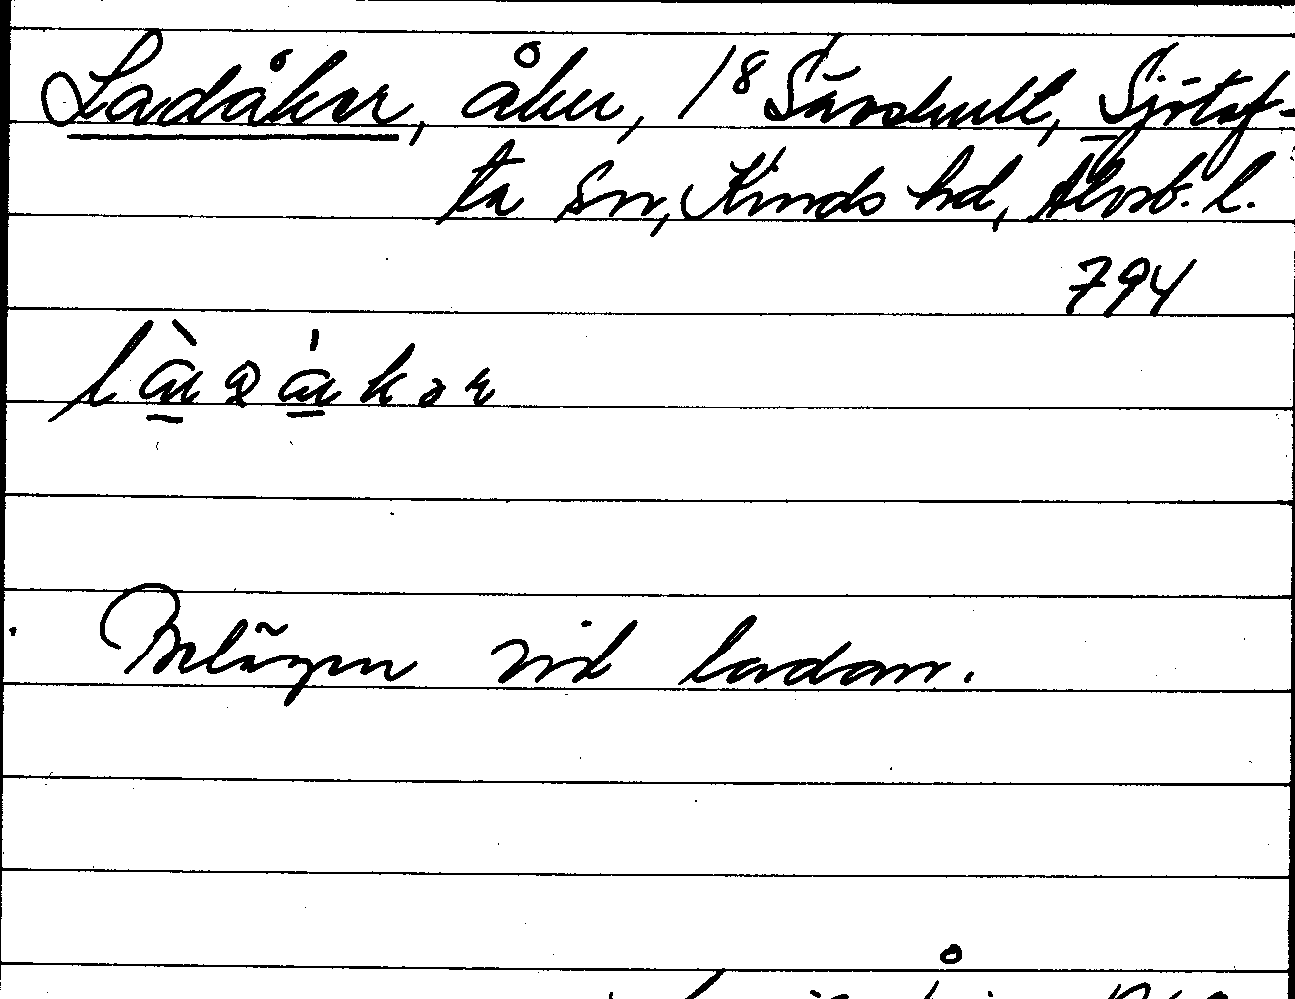 Ladåker, åker, 1⁸ Sävshult, Sjötof-
ta sn, Kinds hd, Älvsb. l.
794
Belägen vid ladan.